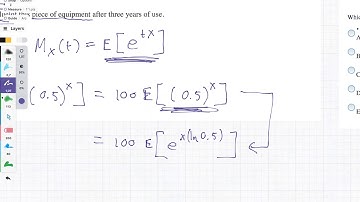 piece of equipment after three years of use.
Whic
Layers
M_X(t) = E[e^{tX}]
(0.5)^x] = 100 E[(0.5)^x]
= 100 E[e^{x(ln 0.5)}]